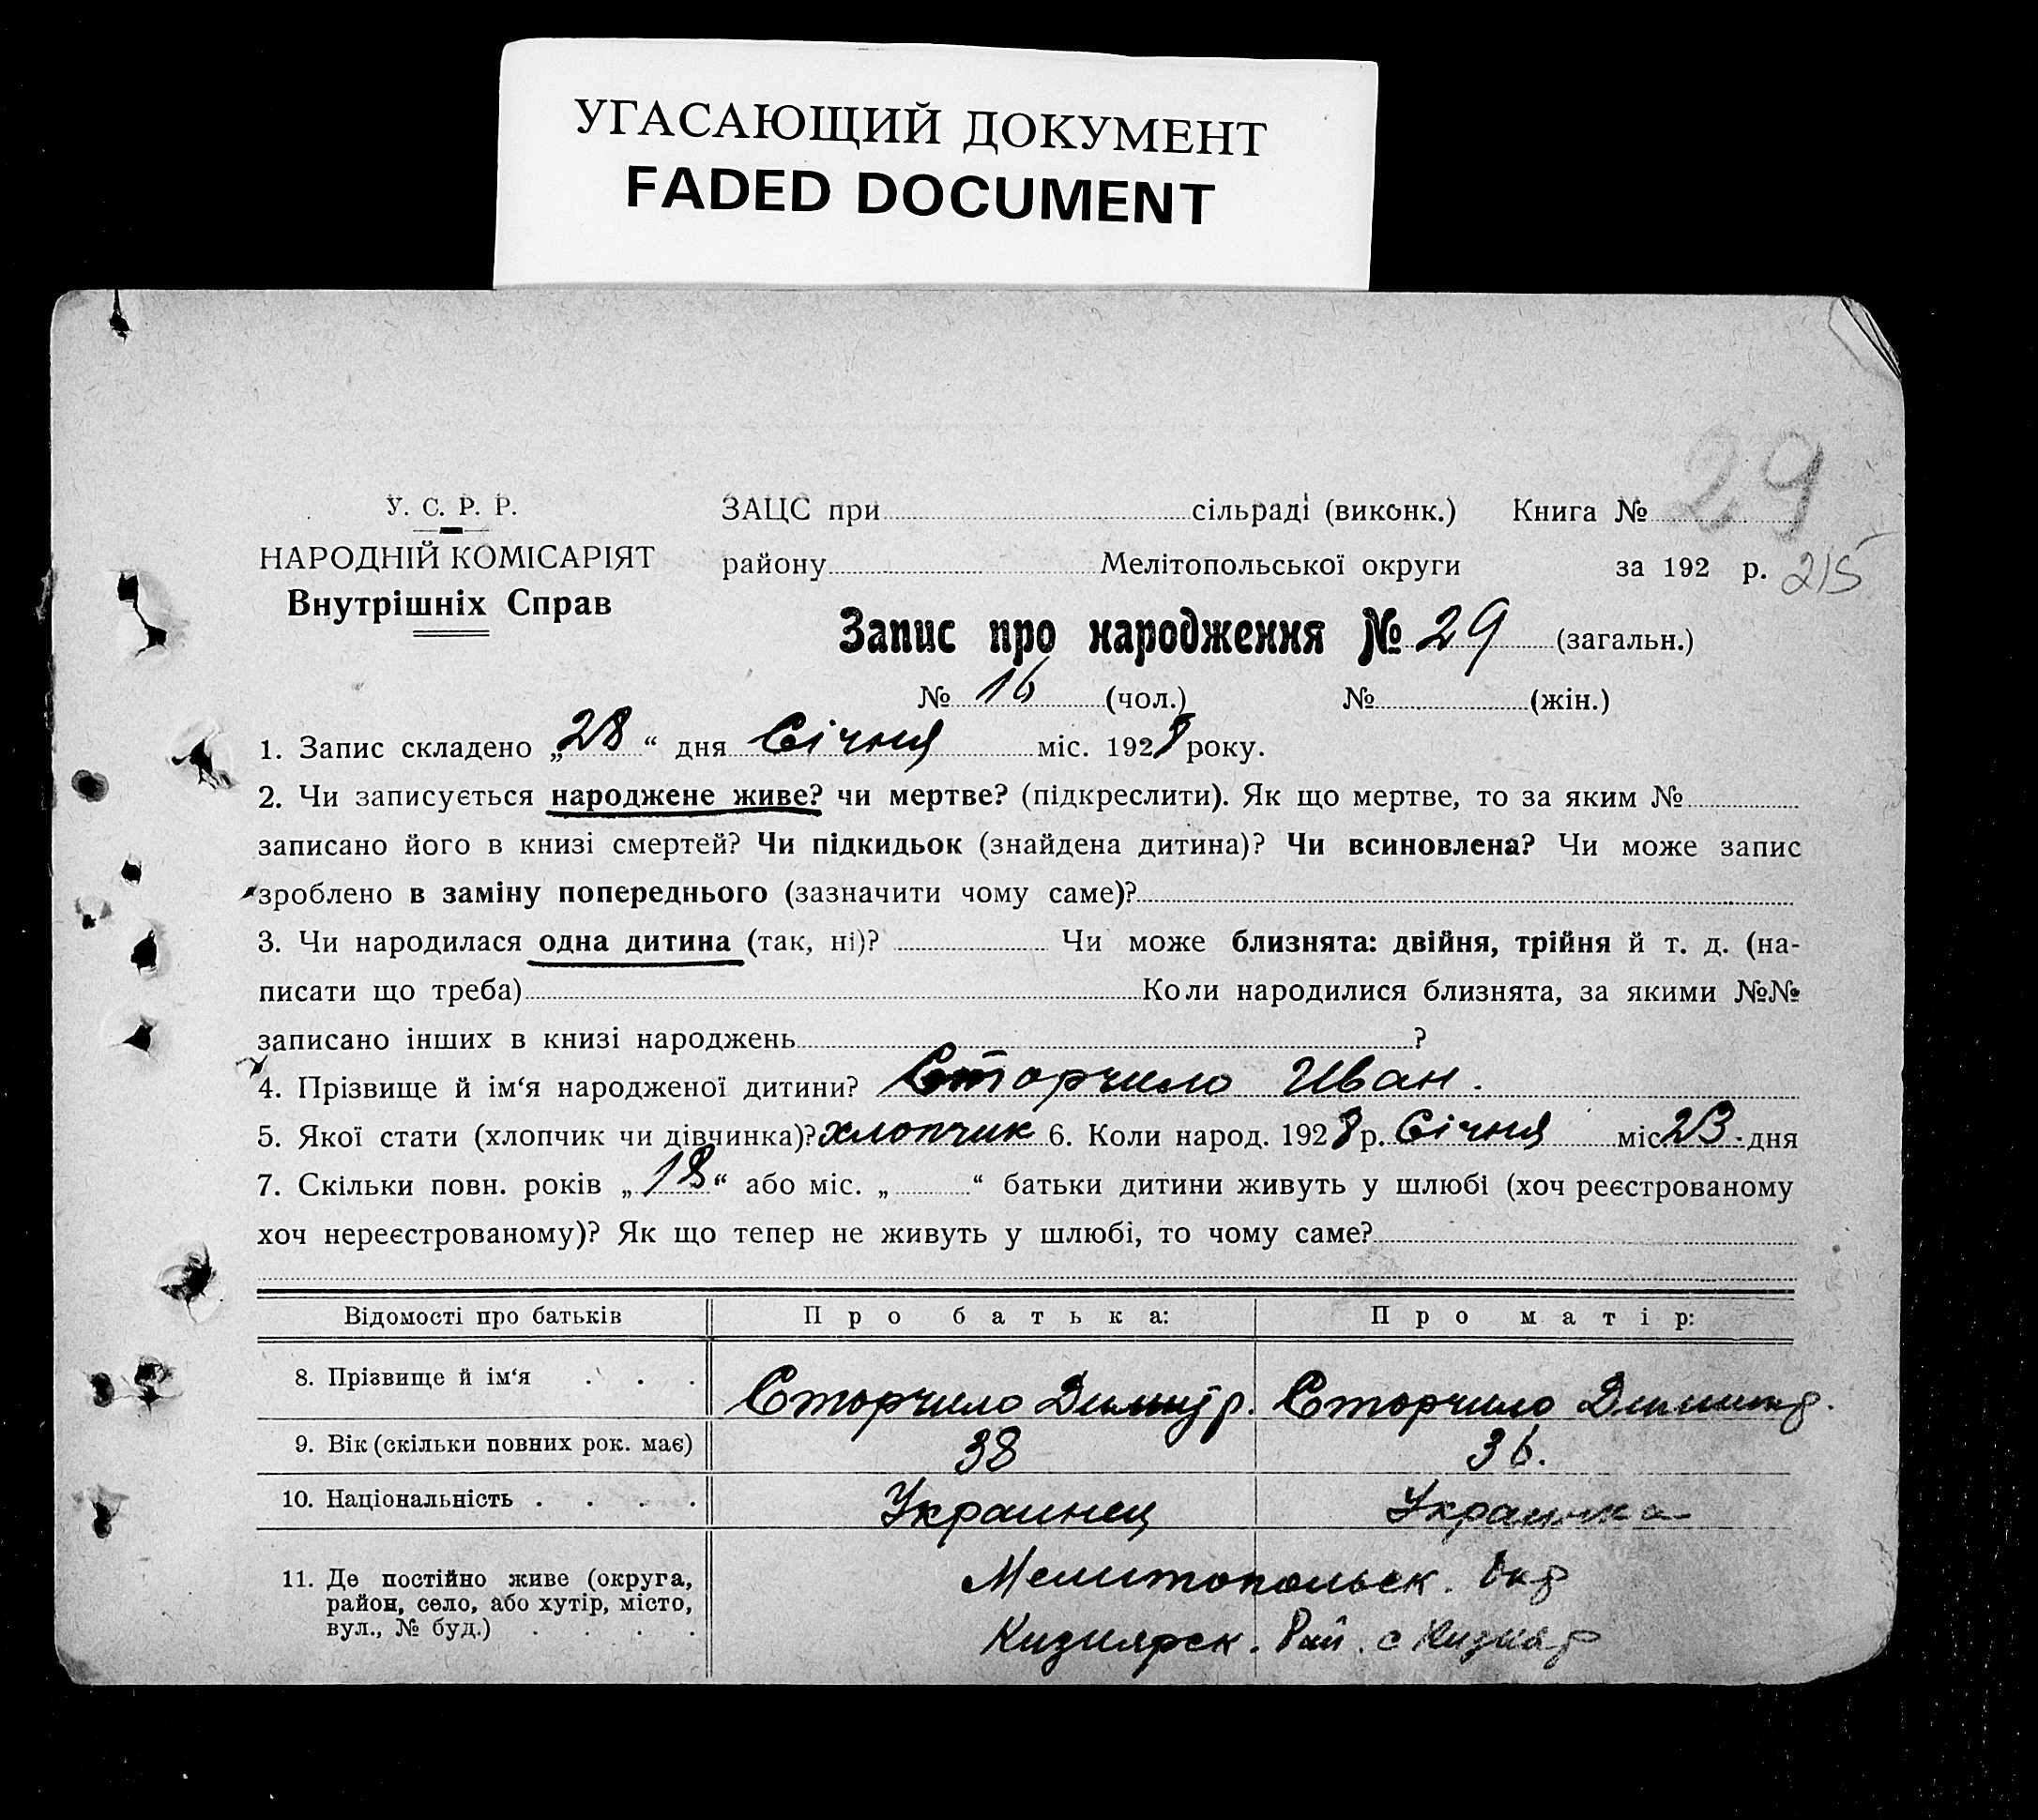 УГАСАЮЩИЙ ДОКУМЕНТ
FADED DOCUMENT
29
У. С. Р. Р.
НАРОДНІЙ КОМІСАРІЯТ
Внутрішніх Справ
ЗАЦС при сільраді (виконк.) Книга №
району Мелітопольської округи за 192 р. 215
Запис про народження № 29 (загальн.)
№ 16 (чол.) № (жін.)
1. Запис складено „28“ дня Січня міс. 1928 року.
2. Чи записується народжене живе? чи мертве? (підкреслити). Як що мертве, то за яким №
записано його в книзі смертей? Чи підкидьок (знайдена дитина)? Чи всиновлена? Чи може запис
зроблено в заміну попереднього (зазначити чому саме)?
3. Чи народилася одна дитина (так, ні)? Чи може близнята: двійня, трійня й т. д. (на-
писати що треба) Коли народилися близнята, за якими №№
записано інших в книзі народжень ?
4. Прізвище й ім‘я народженої дитини? Сторчило Иван.
5. Якої стати (хлопчик чи дівчинка)? хлопчик 6. Коли народ. 1928 р. Січня міс. 23 дня
7. Скільки повн. років „18“ або міс. „ “ батьки дитини живуть у шлюбі (хоч реєстрованому
хоч нереєстрованому)? Як що тепер не живуть у шлюбі, то чому саме?
Відомості про батьків Про батька: Про матір:
8. Прізвище й ім‘я . . . Сторчило Димитр. Сторчило
9. Вік (скільки повних рок. має) 38 36.
10. Національність . . . . Украинец Украинка
11. Де постійно живе (округа,
район, село, або хутір, місто,
вул., № буд.) . . . .
Мелитопольск. Окр
Кизиярск. Рай. с Кизияр